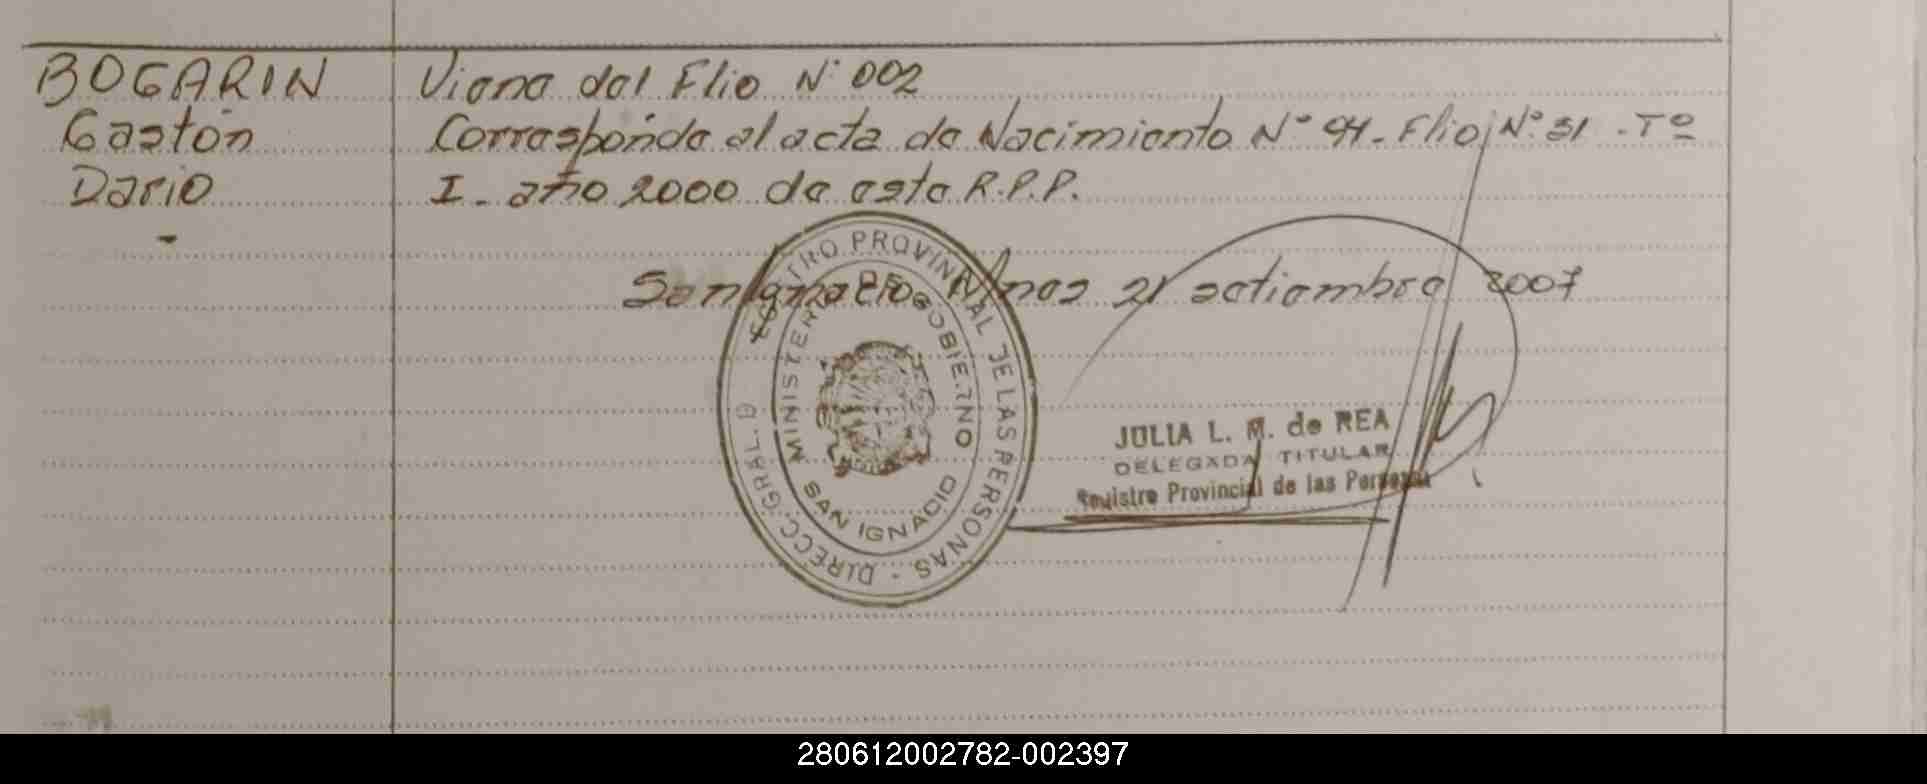 BOGARIN
Gastón
Dario
-
Viene del Flio N° 002
Corresponde al acta de Nacimiento N° 94 - Flio N° 31 - T°
I - año 2000 de este R.P.P.
San Ignacio Mnes 21 setiembre 2007
REGISTRO PROVINCIAL DE LAS PERSONAS - DIRECC. GRAL. D
MINISTERIO DE GOBIERNO
SAN IGNACIO
JULIA L. M. de REA
DELEGADA TITULAR
Registro Provincial de las Personas
280612002782-002397